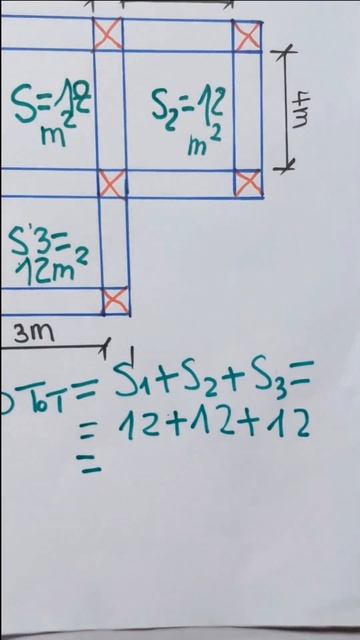 S=12
m²
S₂=12
m²
4m
S'3=
12m²
3m
TOT = S₁+S₂+S₃=
= 12+12+12
=